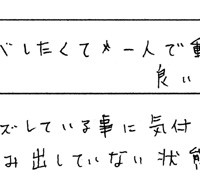 したくても一人で動
良い
ズしている事に気付
み出していない状態